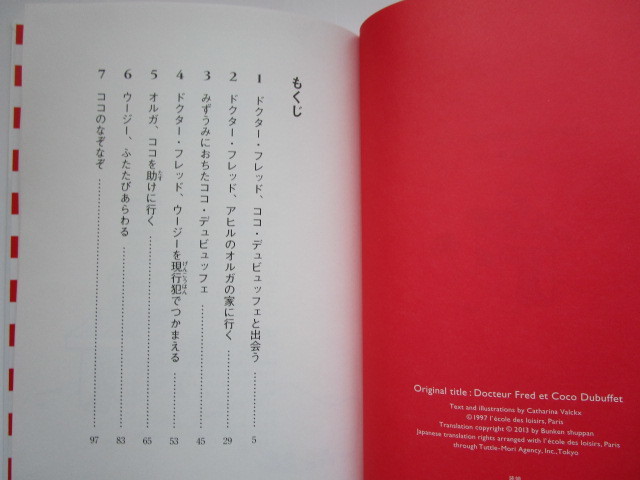 もくじ
1 ドクター・フレッド、ココ・デュビュッフェと出会う……5
2 ドクター・フレッド、アヒルのオルガの家に行く……29
3 みずうみにおちたココ・デュビュッフェ……45
4 ドクター・フレッド、ウージーを現行犯でつかまえる……53
5 オルガ、ココを助けに行く……65
6 ウージー、ふたたびあらわる……83
7 ココのなぞなぞ……97
Original title : Docteur Fred et Coco Dubuffet
Text and illustrations by Catharina Valckx
© 1997 l'école des loisirs, Paris
Translation copyright © 2013 by Bunken shuppan
Japanese translation rights arranged with l'école des loisirs, Paris
through Tuttle-Mori Agency, Inc., Tokyo